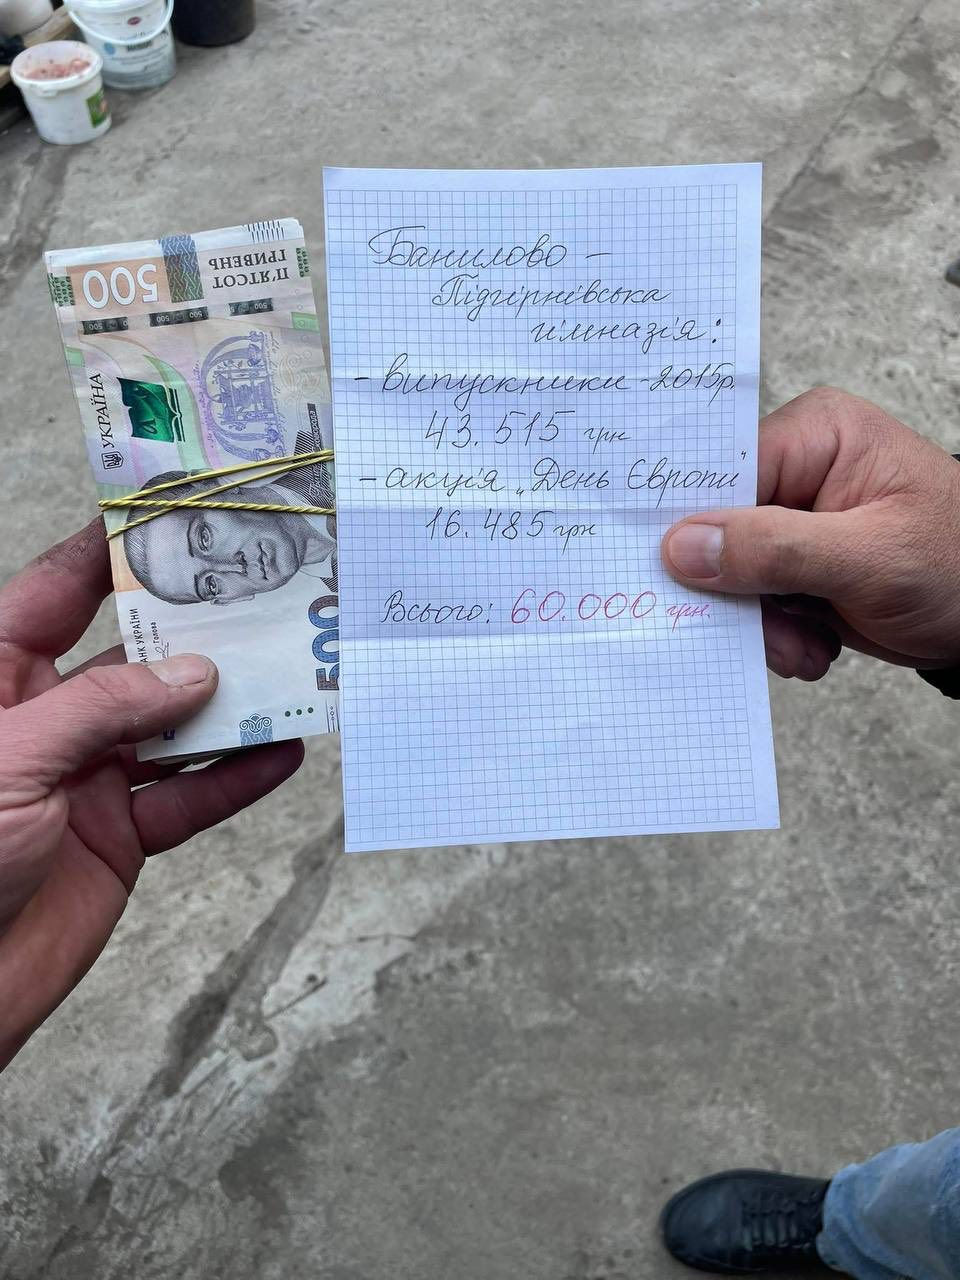 Банилово -
Підгірнівська
гімназія:
- випускники - 2015р.
43.515 грн
- акція „День Європи"
16.485 грн
Всього: 60.000 грн.
500
П'ЯТСОТ
ГРИВЕНЬ
500 500 500
УКРАЇНА
АНК УКРАЇНИ
Голова
500